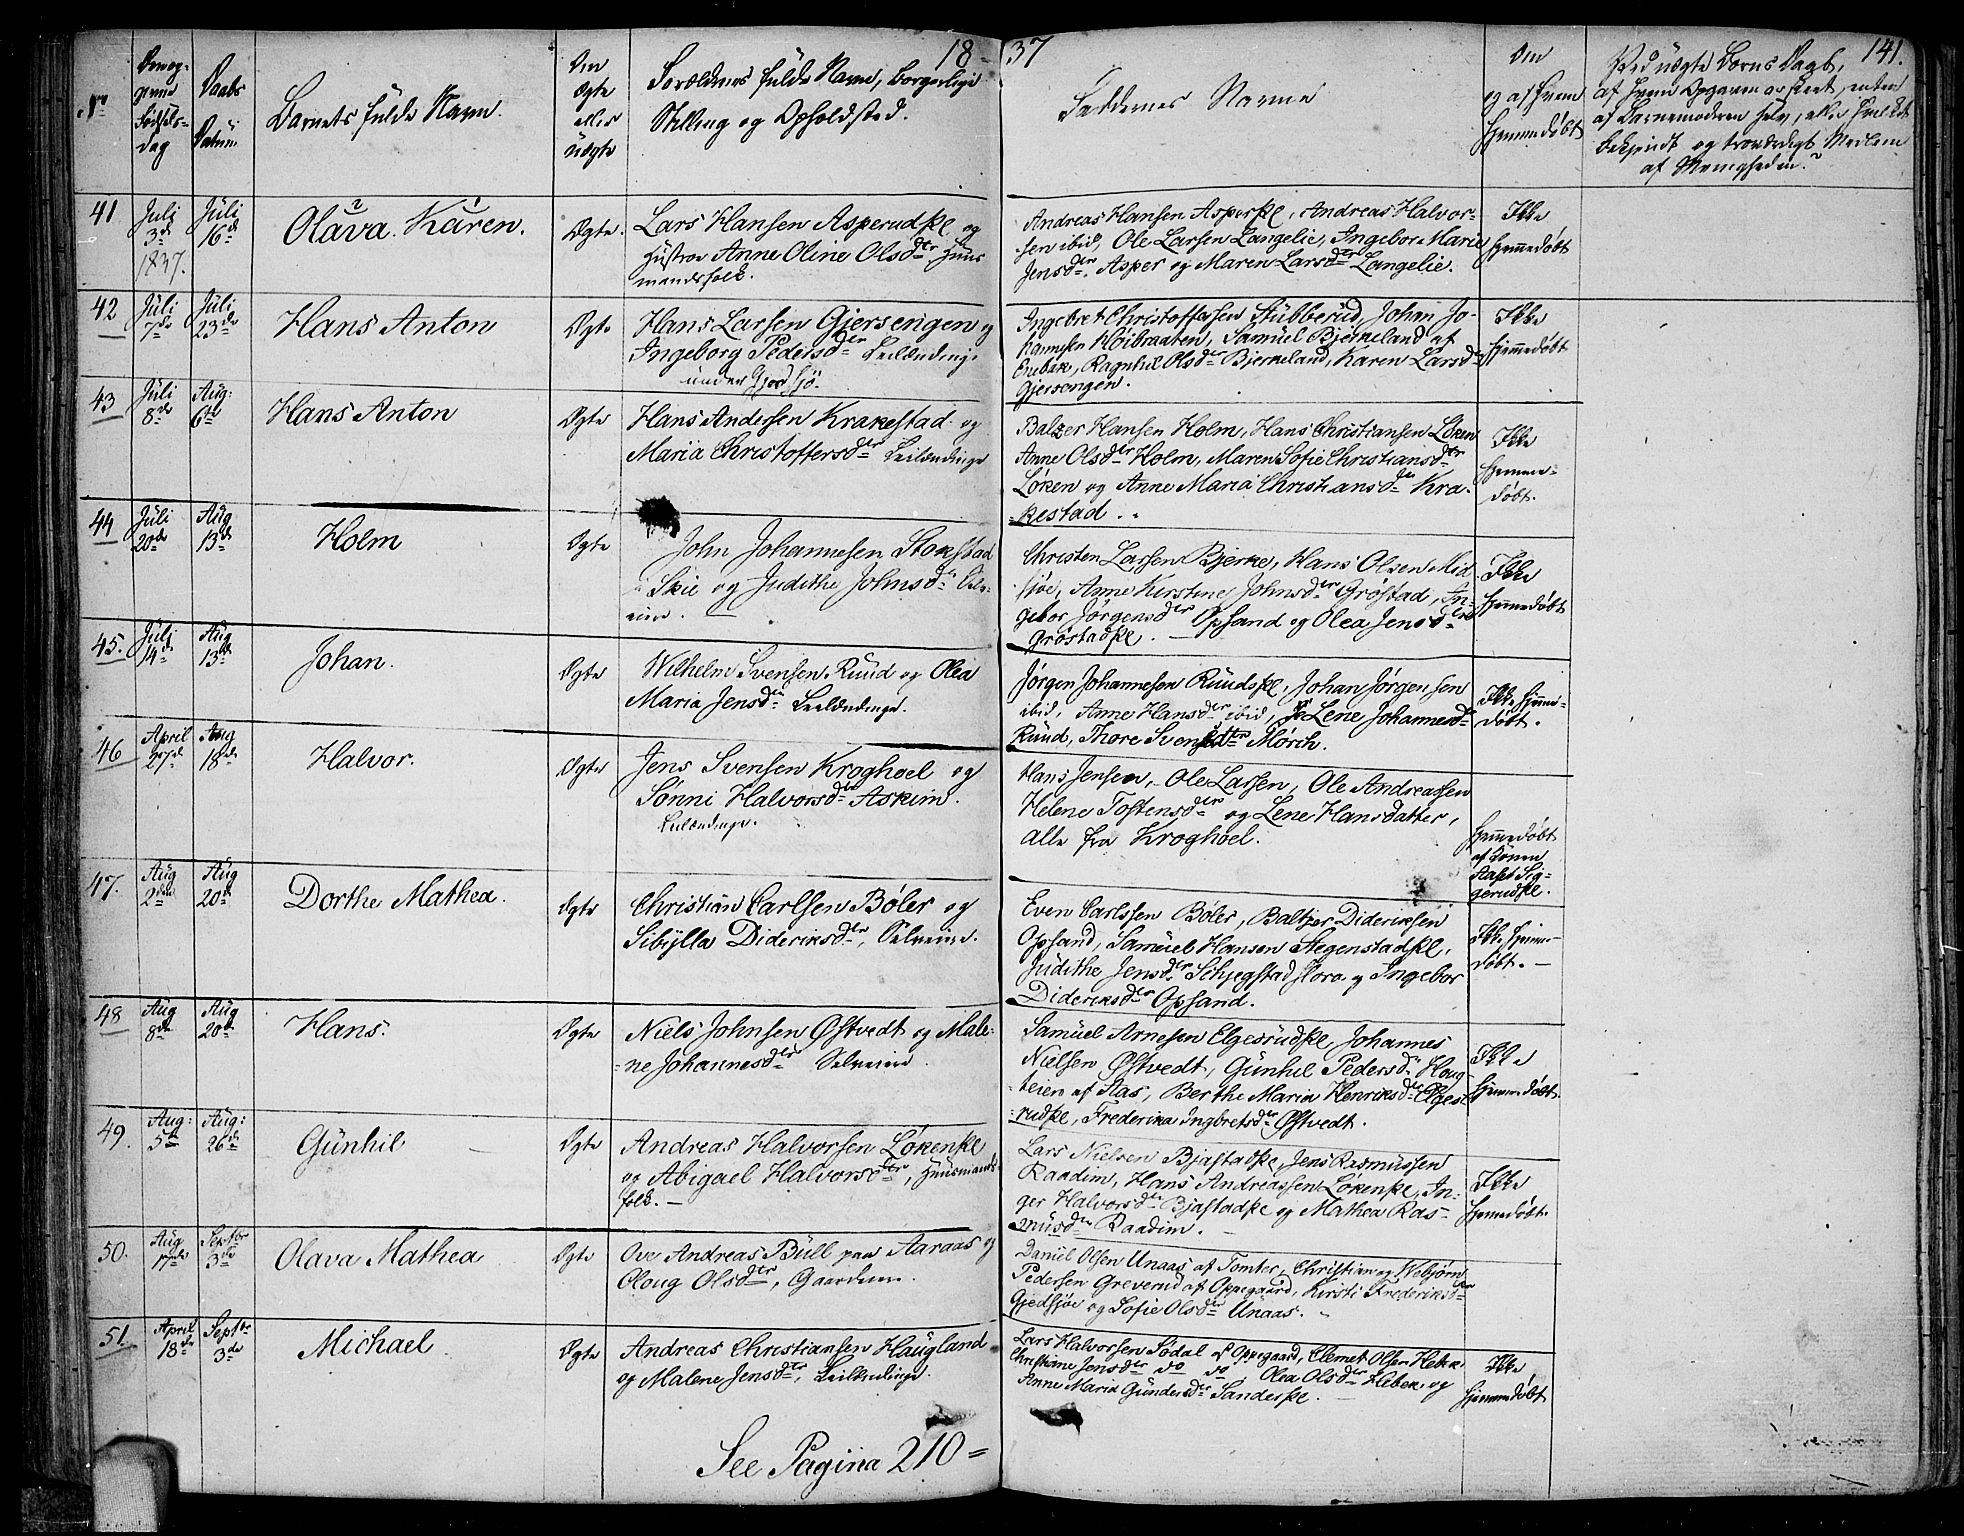 18 37 141.
No
Daabs Datum
Barnets fulde Navn.
Om Ægte eller Uægte
Forældrenes fulde Navne, borgerlige
Stilling og Opholdsted.
Faddernes Navne
Om og af hvem hjemmedøbt
Ved uægte Børns Daab,
af hvem Opgaven er skeet, enten
af Barnemoderen selv, eller hvilket
bekjendt og troværdigt Medlem
af Menigheden?
41 Juli 3de 1837. Juli 16de Olava Karen. Ægte.
Lars Hansen Asperudsk. og
Hustroe Anne Oline Olsdtr Huus
mandsfolk.
Andreas Hansen Aspersk., Andreas Halvor-
sen ibid, Ole Larsen Langelie, Ingebor Marie
Jensdtr. Asper og Maren Larsdtr Langelie.
Ikke hjemmedøbt
42 Juli 7de Juli 23de Hans Anton Ægte
Hans Larsen Gjersengen og
Ingeborg Pedersdtr Leilændinge
under Gjedsjø.
Ingebret Christoffersen Stubberud, Johan Jo-
hannsen Høibraaten, Samuel Bjerkeland af
Enebak, Ragnhil Olsdtr Bjerkeland, Karen Larsdtr
Gjersengen.
Ikke hjemmedøbt
43 Juli 8de Aug: 6te Hans Anton Ægte
Hans Andersen Krakestad og
Maria Christoffersdtr Leilændinge
Balzer Hansen Holm, Hans Christiansen Løken
Anne Olsdtr Holm, Maren Sofie Christiansdtr
Løken og Anne Maria Christiansdtr Kra-
kestad.
Ikke hjemme-
døbt.
44 Juli 20de Aug 13de Holm Ægte
John Johannesen Stokstad
i Skie og Judithe Johnsdtr Selv-
eier.
Christen Larsen Bjerke, Hans Olsen Mid
sjøe, Anne Kirstine Johnsdtr Grøstad, In-
gebor Jørgensdtr Opsand og Olea Jensdtr
Grøstadsk.
Ikke hjemmedøbt
45. Juli 14de Aug 13de Johan. Ægte
Wilhelm Svensen Ruud og Olea
Maria Jensdtr Leilændinge.
Jørgen Johannesen Ruudsk., Johan Jørgensen
ibid, Anne Hansdtr ibid, Lene Johannesdtr
Ruud, Thore Svensdtr Mörch.
Ikke hjemme-
døbt.
46 April 27de Aug 18de Halvor. Ægte
Jens Svensen Kroghoel og
Sønni Halvorsdtr Askim.
Leilændinge.
Hans Jensen, Ole Larsen, Ole Andreassen
Helene Tostensdtr og Lene Hansdatter,
alle fra Kroghoel.
Hjemmedøbt
af
Siggerudsk.
47. Aug 2den Aug 20de Dorthe Mathea. Ægte
Christian Carlsen Bøler og
Sibylla Dideriksdtr, Selveier.
Even Carlssen Bøler, Baltzer Dideriksen
Opsand, Samuel Hansen Stegenstadsk.,
Judithe Jensdtr Schjegstad store og Ingebor
Dideriksdtr Opsand.
Ikke hjemme-
døbt.
48 Aug 8de Aug 20de Hans. Ægte
Niels Johnsen Østvedt og Male-
ne Johannesdtr Selveiere.
Samuel Arnesen Elgesrudsk., Johannes
Nielsen Østvedt, Gunhil Pedersdtr Houg-
teien af Aas, Berthe Maria Henriksdtr Elges-
rudsk., Frederika Ingbretsdtr Østvedt.
Ikke hjemmedøbt.
49. Aug: 5te Aug: 26de Gunhil Ægte
Andreas Halvorsen Løkensk.
og Abigael Halvorsdtr, Huusmands-
folk.
Lars Nielsen Bjastadsk., Jens Rasmussen
Raadim, Hans Andreassen Løkensk., In-
ger Halvorsdtr Bjastadsk. og Mathea Ras-
musdtr Raadim.
Ikke hjemmedøbt.
50. Aug 17de Septbr 3de Olava Mathea Ægte
Ove Andreas Bull paa Aaraas og
Oloug Olsdtr, Gaardeier.
Daniel Olsen Unaas af Tomter, Christian og Webjørn
Pedersen Greverud af Oppegaard, Kirsti Frederiksdtr
Gjedsjøe og Sofie Olsdtr Unaas.
51. April 18de Septbr 3de Michael Ægte
Andreas Christiansen Haugland
og Malene Jensdtr, Leilændinge.
Lars Halvorsen Sødal af Oppegaard, Clemet Olsen Hebek
Christiane Jensdtr do do Olea Olsdtr Hebek og
Anne Maria Gundersdtr Sandersk.
Ikke hjemmedøbt
See Pagina 210 =